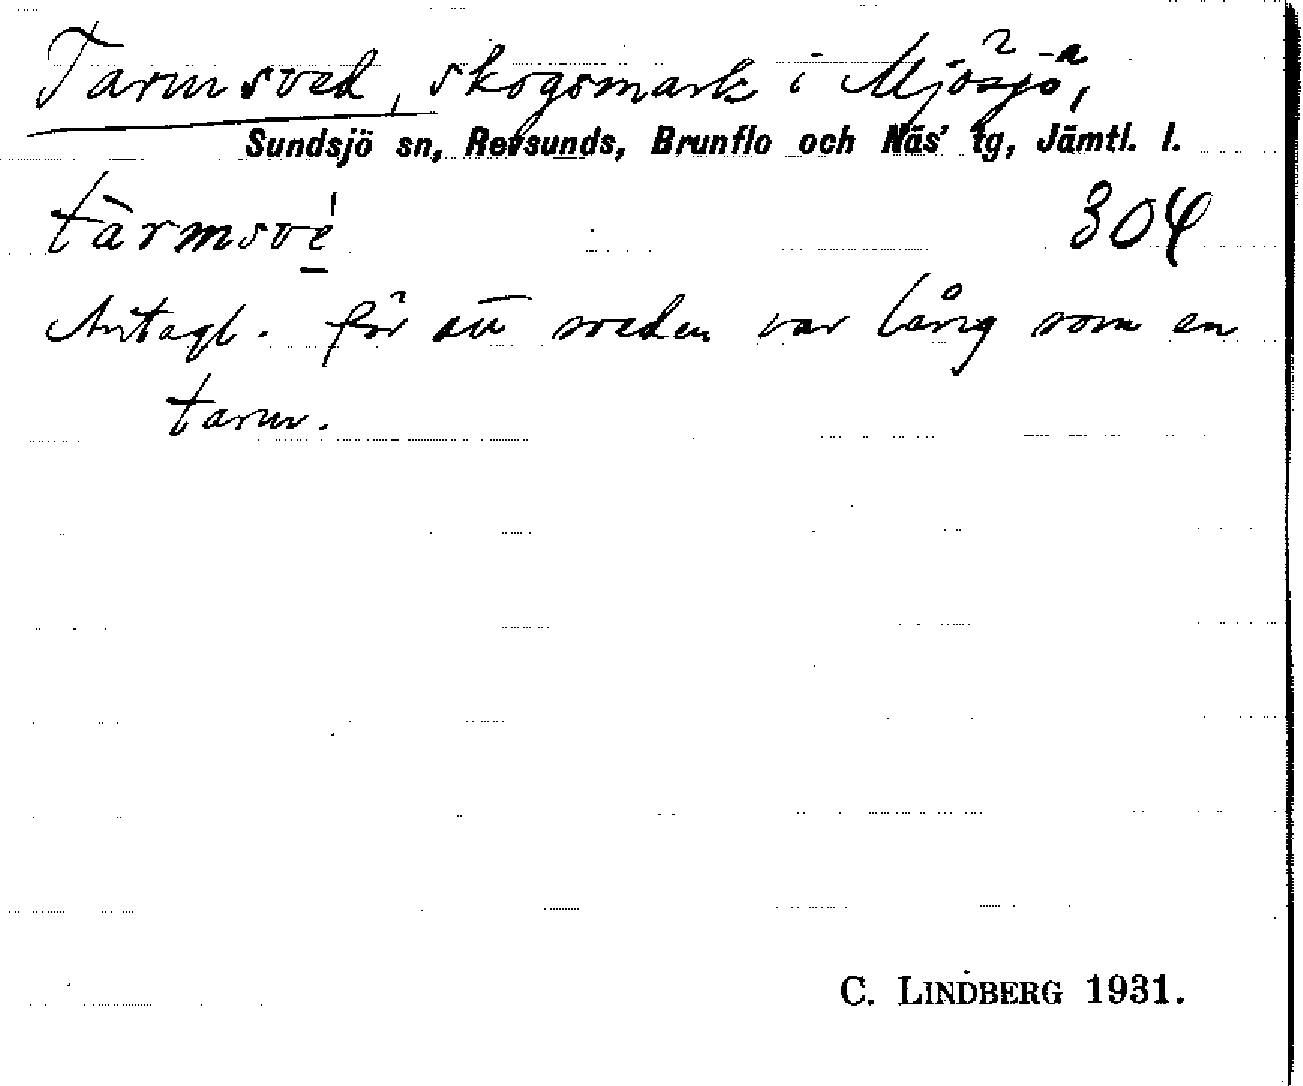 Tarmsved, skogsmark i Mjösjö,
Sundsjö sn, Revsunds, Brunflo och Näs' tg, Jämtl. l.
tàrmsve̠̍ 304
Antagl. för att sveden var lång som en
tarm.
C. LINDBERG 1931.